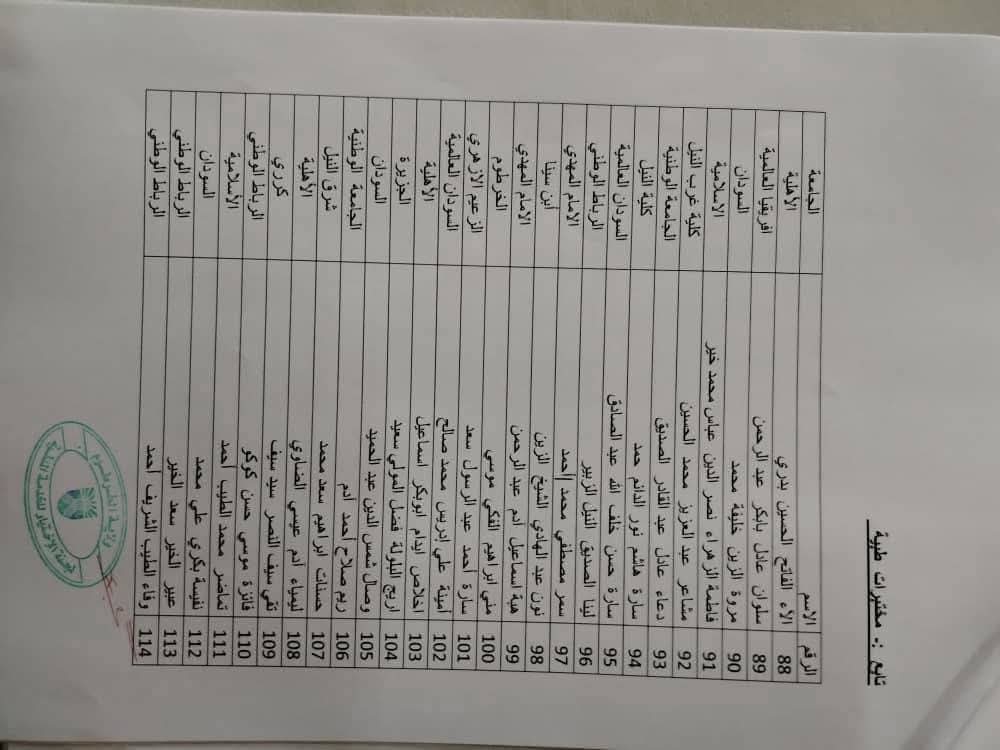 تابع :- مختبرات طبية
الرقم الاسم الجامعة
88 الاء الفاتح الحسين بدري الأهلية
89 سلوان عادل بابكر عبد الرحمن افريقيا العالمية
90 مروة الزين خليفة محمد السودان
91 فاطمة الزهراء نصر الدين عباس محمد خير الاسلامية
92 مشاعر عبد العزيز محمد الحسين كلية غرب النيل
93 دعاء عادل عبد القادر الصديق الجامعة الوطنية
94 سارة هاشم نور الدائم حمد كلية النيل
95 سارة حسن خلف الله عبد الصادق السودان العالمية
96 لينا الصديق النيل الزبير الرباط الوطني
97 سمر مصطفي محمد أحمد الامام المهدي
98 نون عبد الهادي الشيخ الزين ابن سينا
99 هبة اسماعيل ادم عبد الرحمن الامام المهدي
100 مني ابراهيم الفكي موسي الخرطوم
101 سارة أحمد عبد الرسول سعد الزعيم الازهري
102 أمينة علي إدريس محمد صالح السودان العالمية
103 اخلاص ايدام ابوبكر اسماعيل الأهلية
104 اريج البلولة فضل المولي سعيد الجزيرة
105 وصال شمس الدين عبد الحميد السودان
106 ريم صلاح أحمد ادم الجامعة الوطنية
107 حسنات ابراهيم سعد محمد شرق النيل
108 لمياء ادم عيسي الضاوي الأهلية
109 تقي سيف النصر سيد سيف كرري
110 فائزة موسي حسن كوكو الرباط الوطني
111 تماضر محمد الطيب أحمد الأسلامية
112 نفيسة بكري علي محمد السودان
113 عبير الخير سعد الخير الرباط الوطني
114 وفاء الطيب الشريف أحمد الرباط الوطني
ولاية الخرطوم
لجنة الاختيار للخدمة المدنية